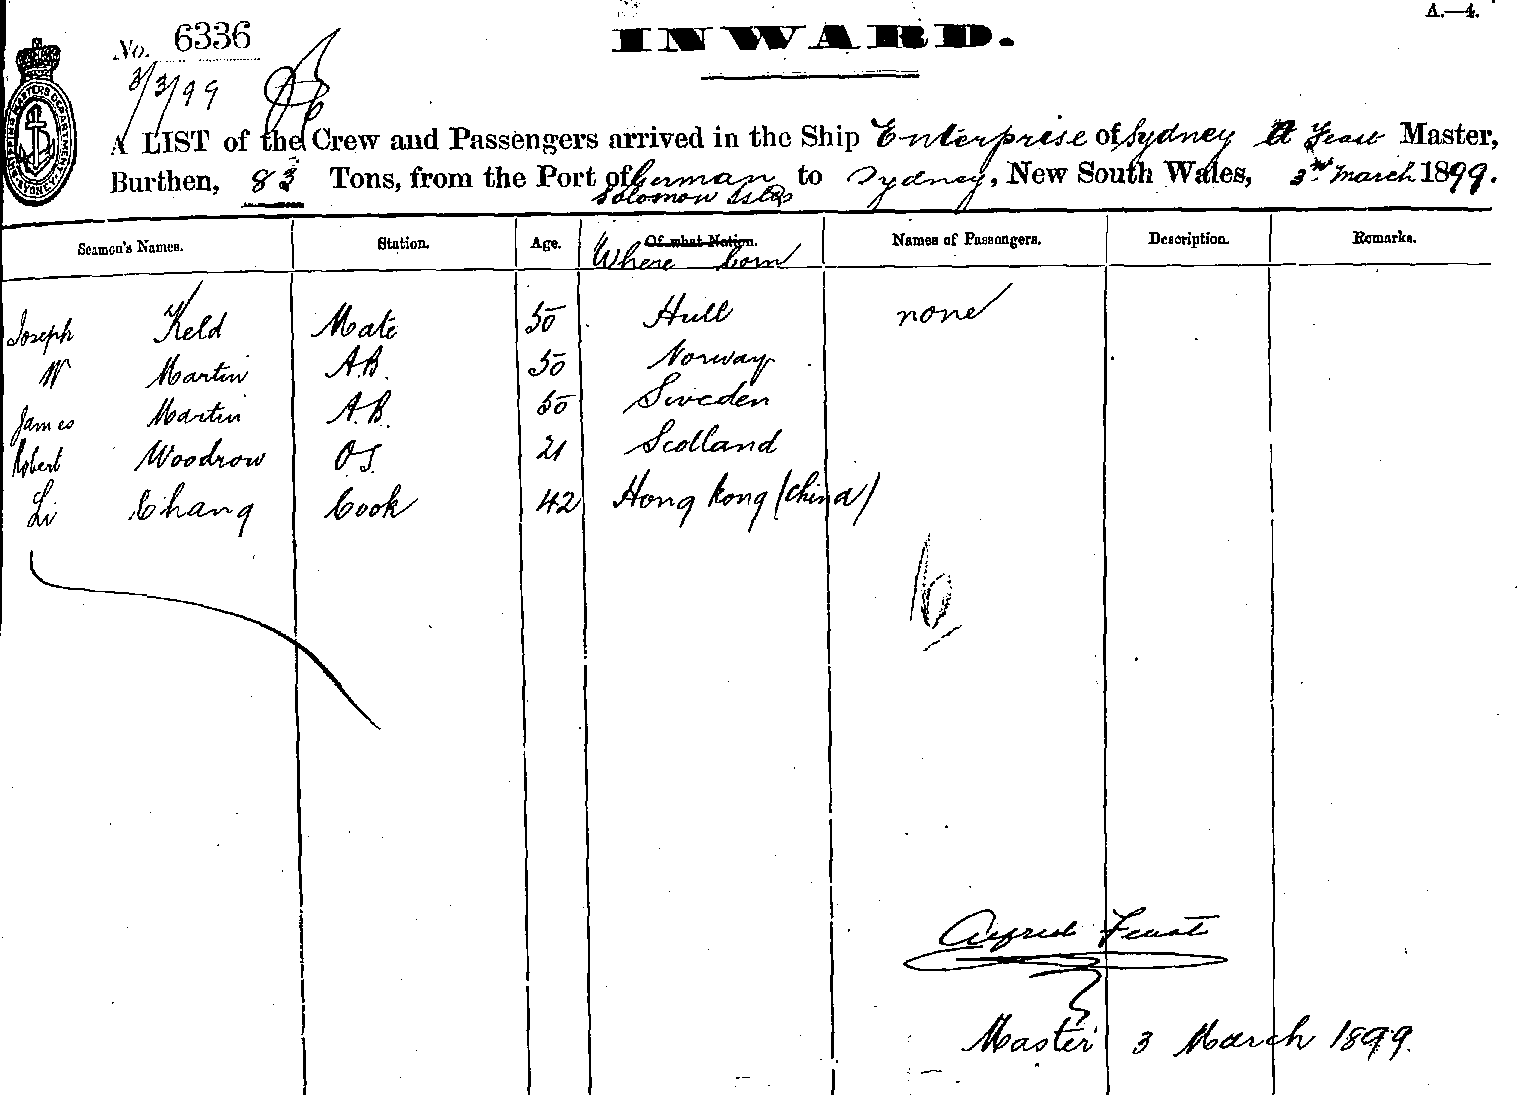 A.—4.
No. 6336
INWARD.
3/3/99
SHIPPING MASTERS DEPARTMENT SYDNEY
A LIST of the Crew and Passengers arrived in the Ship Enterprise of Sydney A Feast Master,
Burthen, 83 Tons, from the Port of German Solomon Isles to Sydney, New South Wales, 3rd March 1899.
Seamen's Names. Station. Age. Of what Nation. Where born Names of Passengers. Description. Remarks.
Joseph Keld Mate 50 Hull none
W Martin A.B. 50 Norway
James Martin A.B. 50 Sweden
Robert Woodrow OS. 21 Scotland
Li Chang Cook 42 Hong Kong (China)
6
Alfred Feast
Master 3 March 1899.